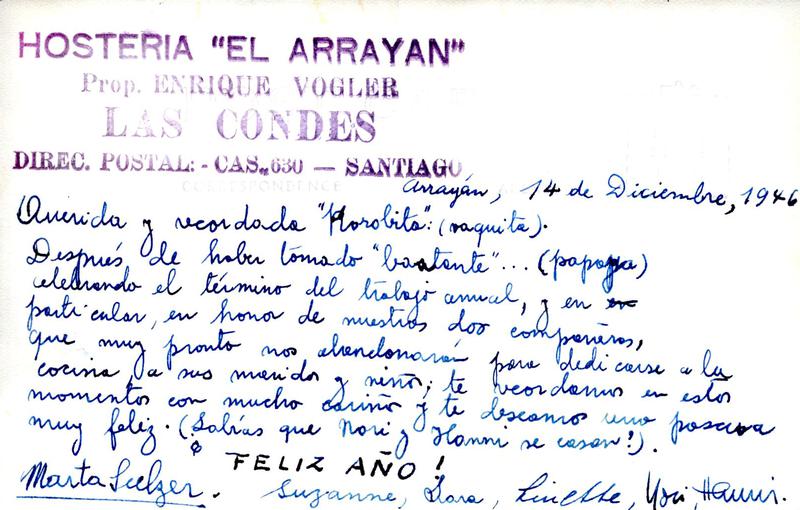 HOSTERIA "EL ARRAYAN"
Prop. ENRIQUE VOGLER
LAS CONDES
DIREC. POSTAL: - CAS. 630 — SANTIAGO
CORRESPONDENCE
Arrayán, 14 de Diciembre, 1946
Querida y recordada "Korobita": (vaquita).
Después de haber tomado "bastante"... (papaya)
celebrando el término del trabajo anual, y en
particular, en honor de nuestras dos compañeras,
que muy pronto nos abandonarán para dedicarse a la
cocina, a sus maridos y niños; te recordamos en estos
momentos con mucho cariño y te deseamos una pascua
muy feliz. (Sabías que Nori y Hanni se casan!).
& FELIZ AÑO!
Marta Suzanne, Linette, Hanni.